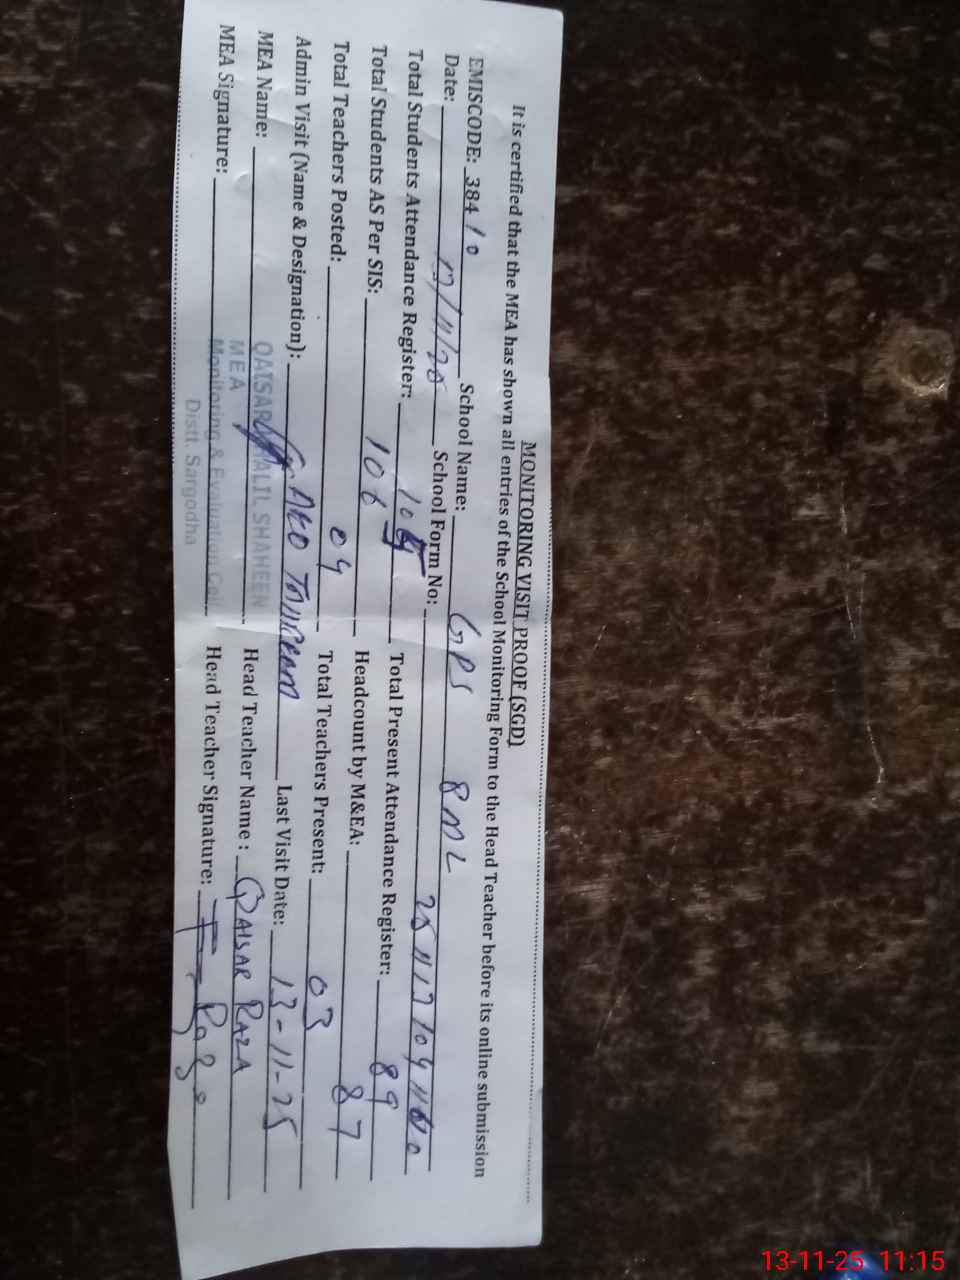 MONITORING VISIT PROOF (SGD)
It is certified that the MEA has shown all entries of the School Monitoring Form to the Head Teacher before its online submission
EMISCODE: 384 10 School Name: GPS 8ML
Date: School Form No:
Total Students Attendance Register: Total Present Attendance Register: 89
Total Students AS Per SIS: 106 Headcount by M&EA: 87
Total Teachers Posted: 04 Total Teachers Present: 03
Admin Visit (Name & Designation): Last Visit Date: 13-11-25
MEA Name: QAISAR KHALIL SHAHEEN Head Teacher Name : QAISAR RAZA
MEA
MEA Signature: Monitoring & Evaluation Cell Head Teacher Signature:
Distt. Sargodha
13-11-25 11:15